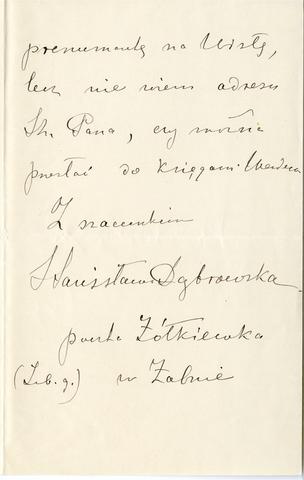 prenumeratę na Wisłę,
lecz nie wiem adresu
Sz. Pana, czy można
przesłać do księgarni
Z szacunkiem
Stanisława Dąbrowska
poczta Żółkiewka
(Lub. g.) w Żabnie